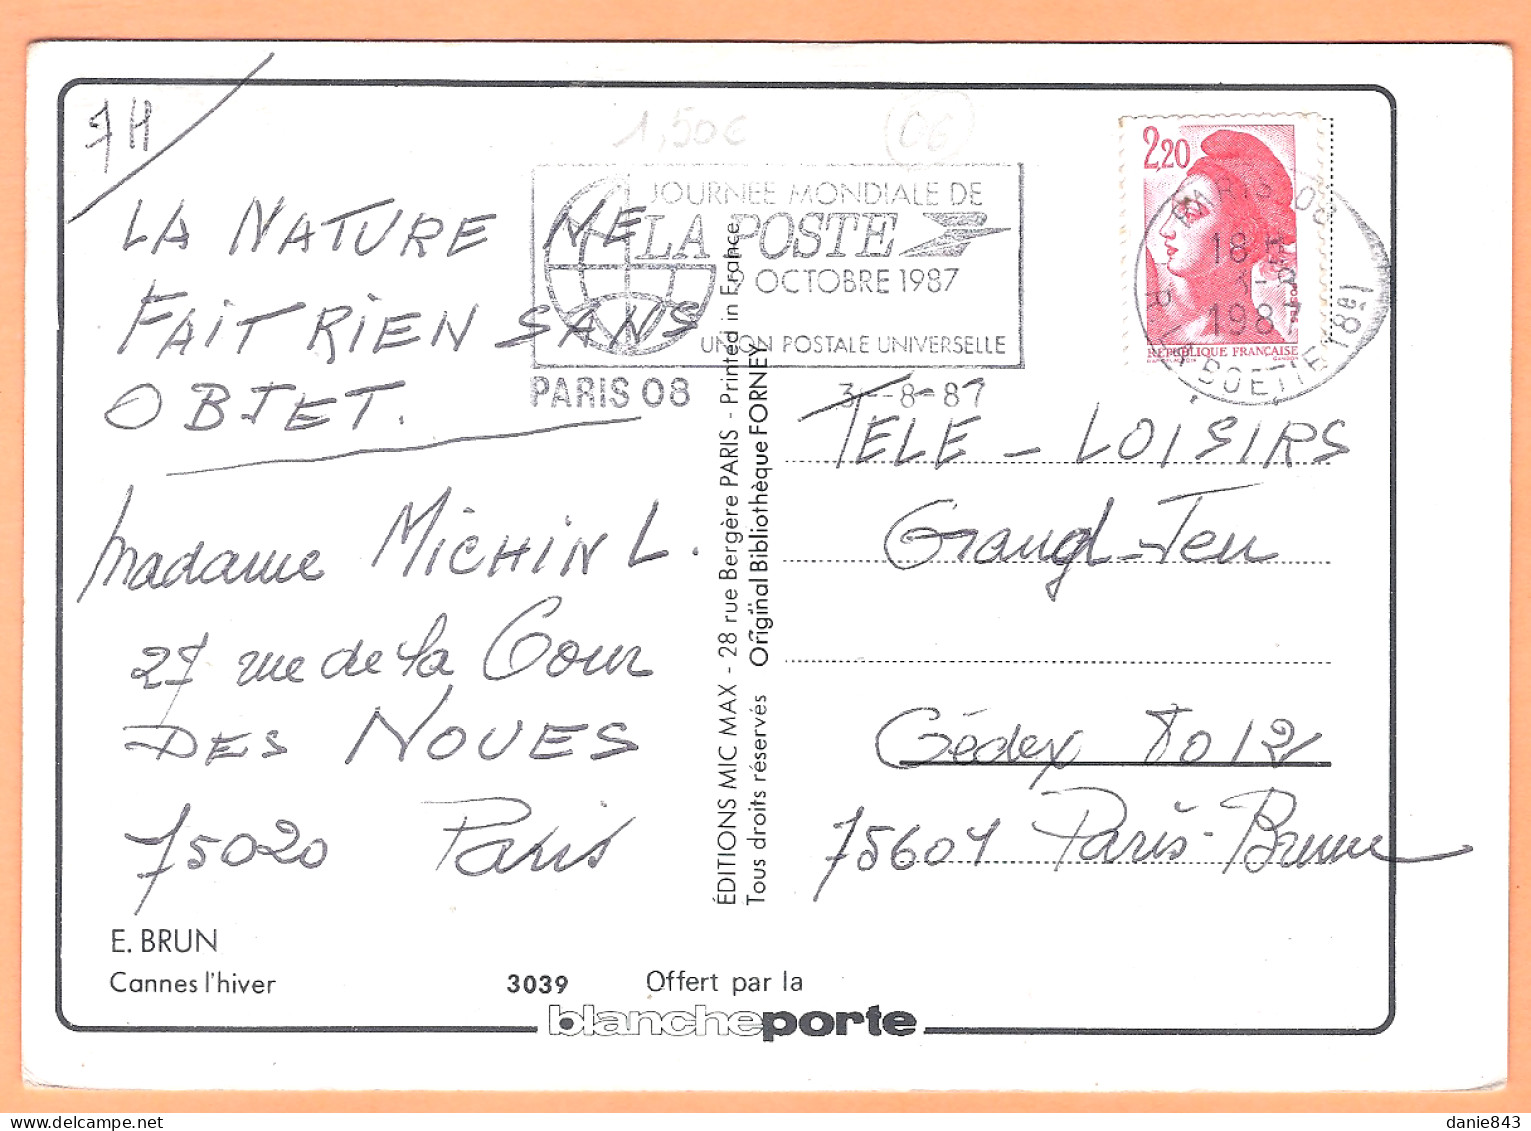 7H
1,50€
06
LA NATURE NE
FAIT RIEN SANS
OBJET.
Madame MICHIN L.
27 rue de la Cour
DES NOUES
75020 Paris
E. BRUN
Cannes l'hiver
3039
Offert par la
blancheporte
JOURNÉE MONDIALE DE
LA POSTE
9 OCTOBRE 1987
UNION POSTALE UNIVERSELLE
PARIS 08
3-8-87
ÉDITIONS MIC MAX - 28 rue Bergère PARIS - Printed in France
Tous droits réservés Original Bibliothèque FORNEY
2,20
RÉPUBLIQUE FRANÇAISE
PARIS 08
18 H
3-8
1987
R. LA BOETIE (8e)
TELE - LOISIRS
Grand-Jeu
Cédex 8012
75601 Paris-Brune
danie843